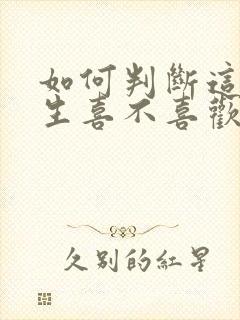 如何判斷這
生喜不喜歡
久別的紅星